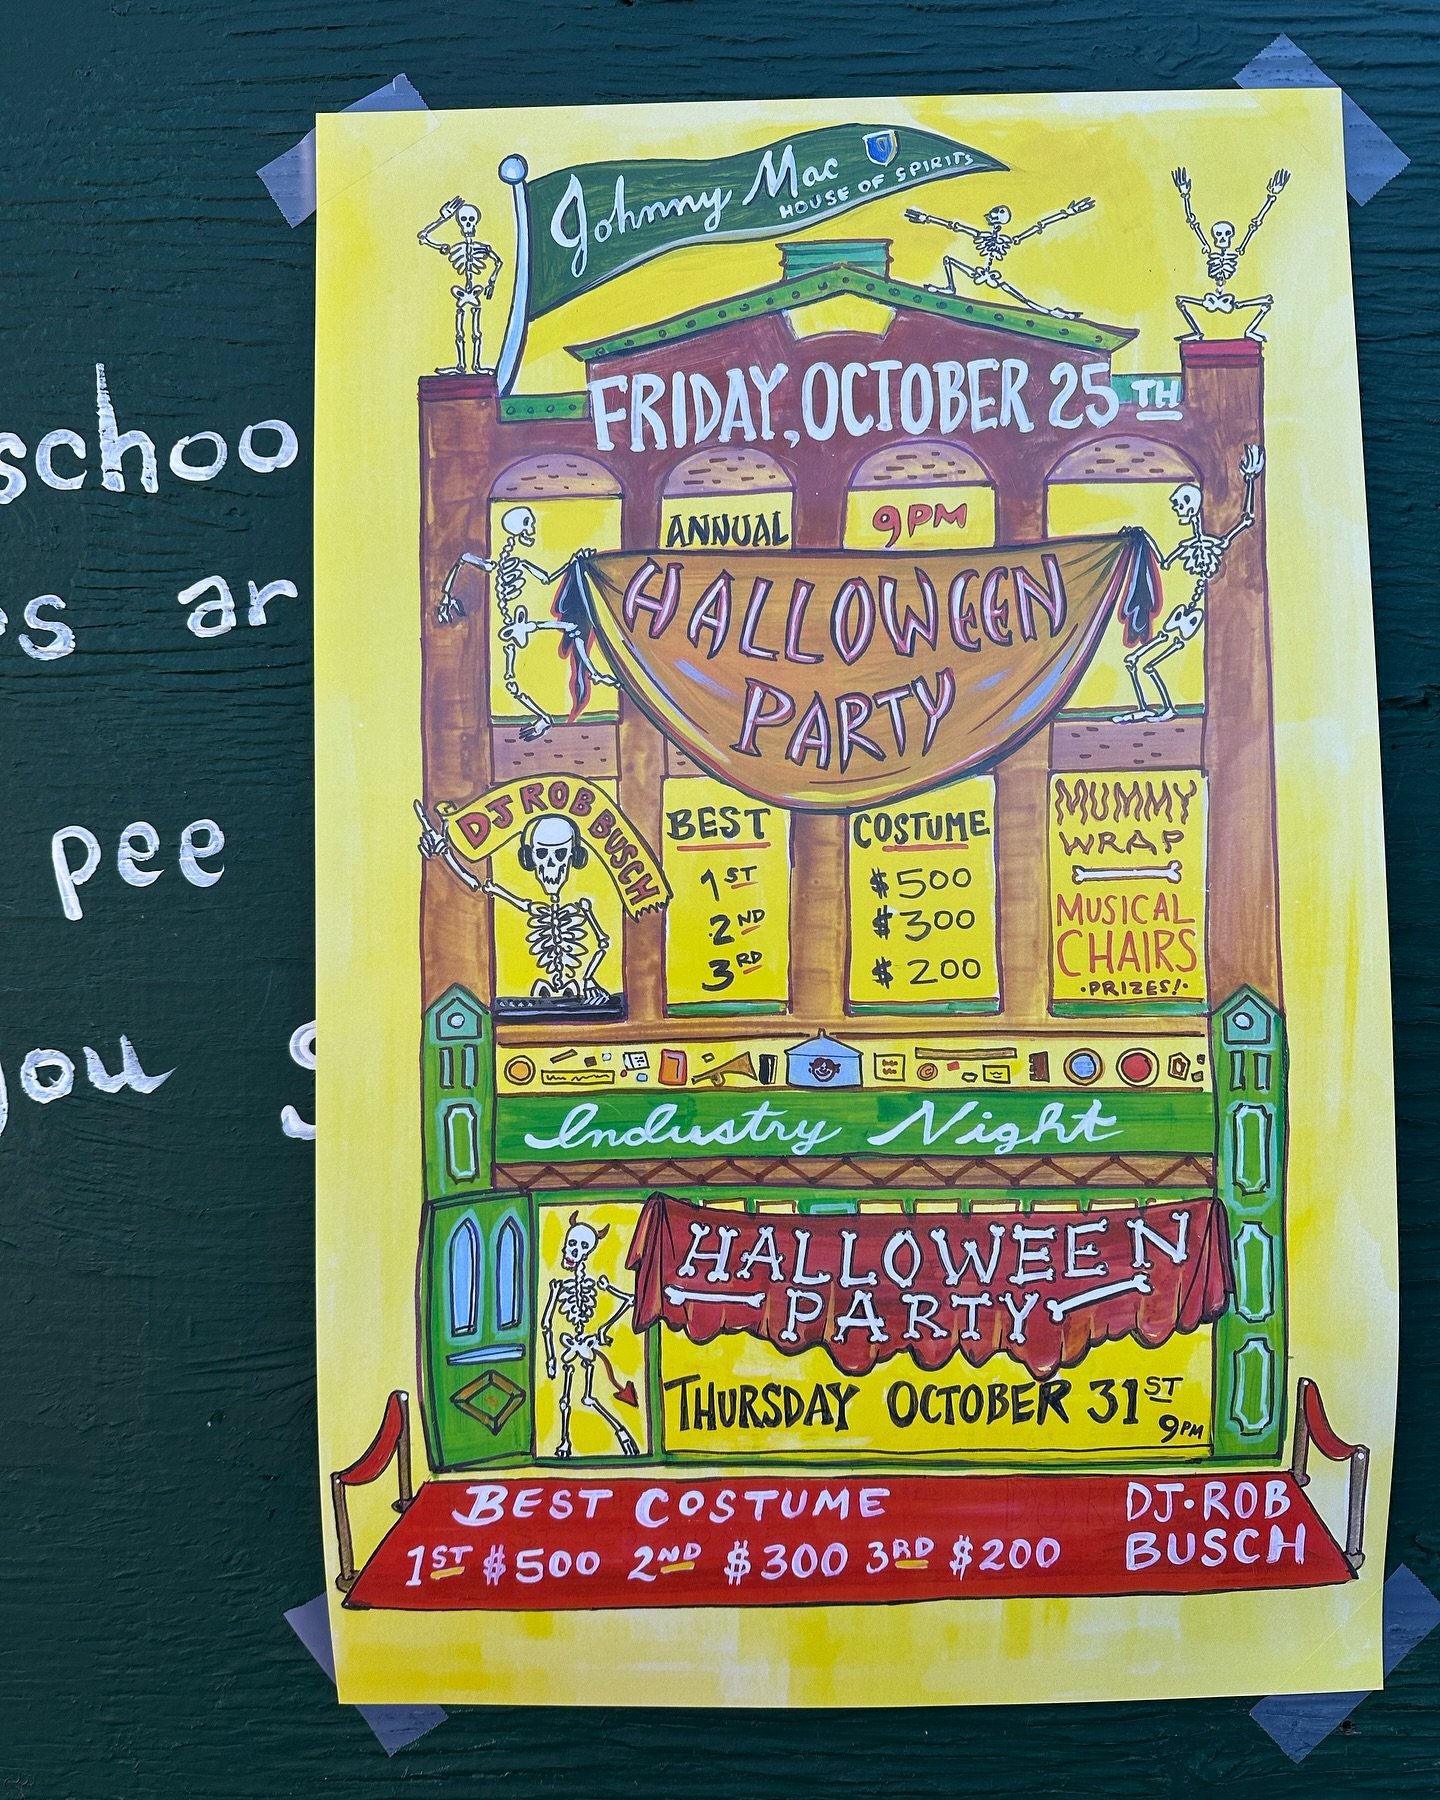 schoo
es ar
pee
you
Johnny Mac
HOUSE OF SPIRITS
FRIDAY, OCTOBER 25TH
ANNUAL
9PM
HALLOWEEN
PARTY
DJ ROB BUSCH
BEST COSTUME
1ST $500
2ND $300
3RD $200
MUMMY
WRAP
MUSICAL
CHAIRS
·PRIZES!·
Industry Night
HALLOWEEN
PARTY
THURSDAY OCTOBER 31ST
9PM
BEST COSTUME
1ST $500 2ND $300 3RD $200
DJ·ROB
BUSCH